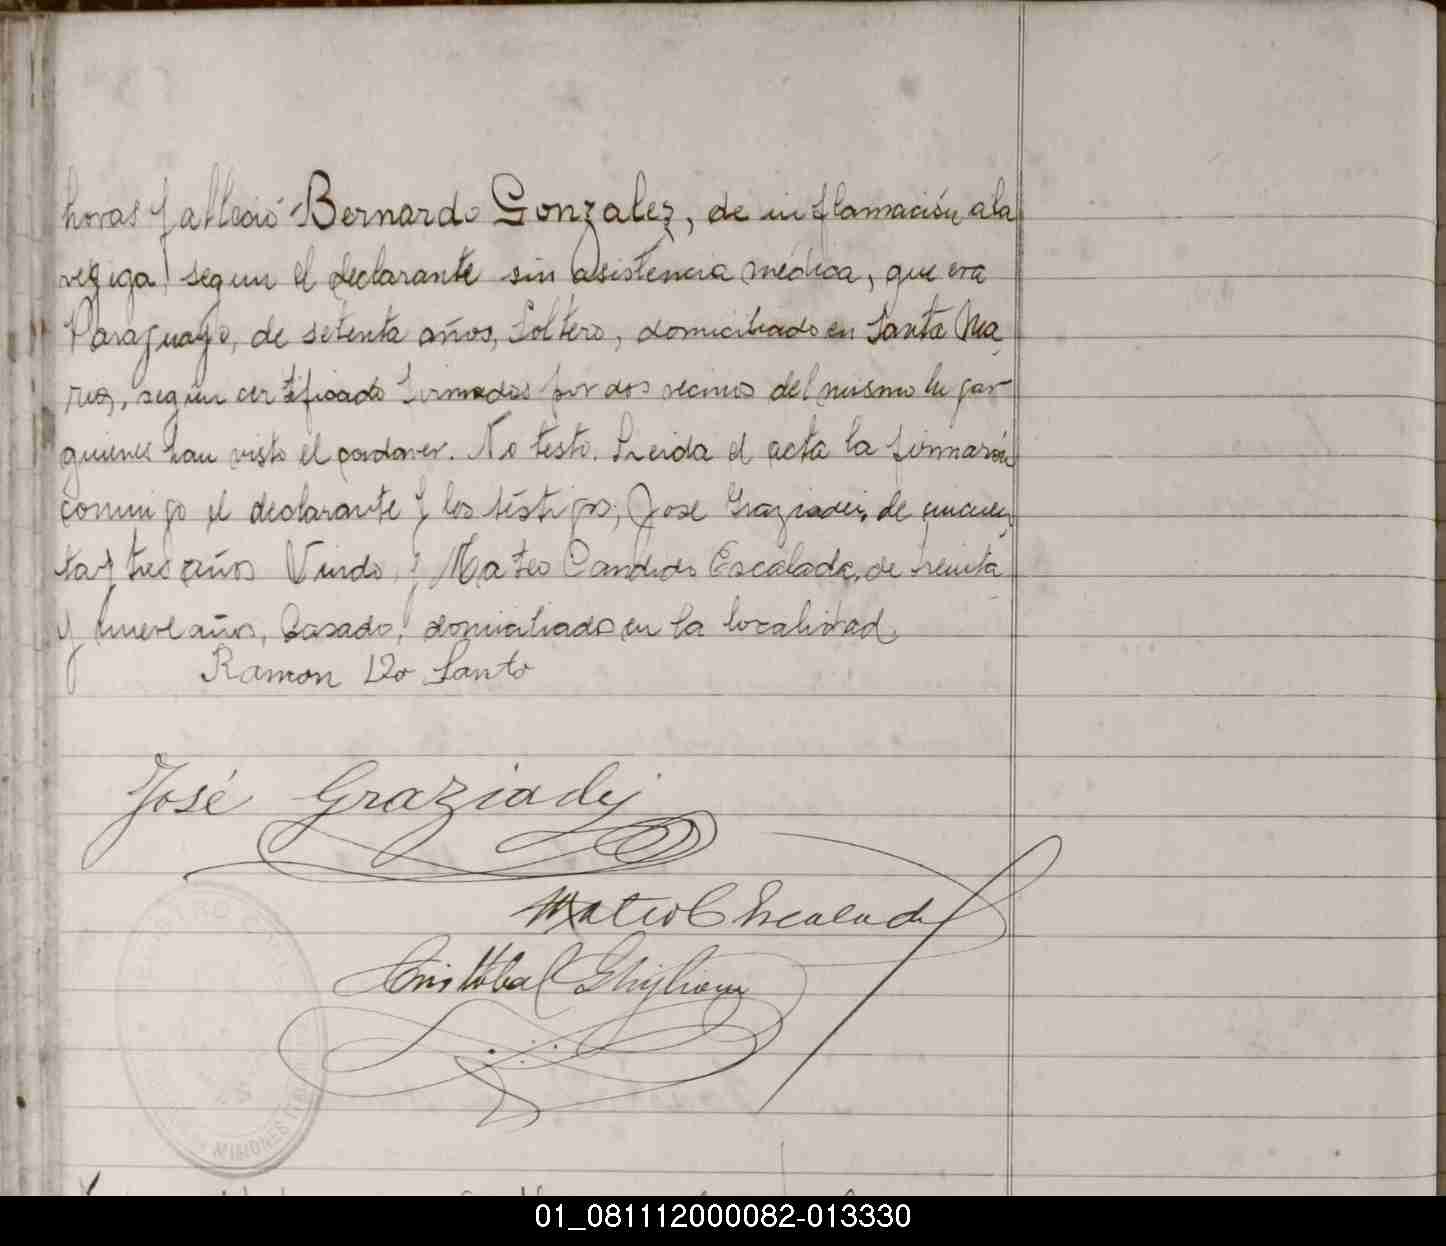 horas falleció Bernardo Gonzalez, de inflamación a la
vegiga, segun el declarante sin asistencia médica, que era
Paraguayo, de setenta años, Soltero, domiciliado en Santa Ma
ria, segun certificado firmados por dos vecinos del mismo lugar
quienes han visto el cadaver. No testó. Leida el acta la firmarón
conmigo el declarante y los téstigos, Jose Graziadei, de cincuen
ta y tres años Viudo, y Mateo Candido Escalada, de treinta
y nueve años, Casado, domiciliados en la localidad.
Ramon Do Santo
José Graziadei
Mateo C Escalada
Cristóbal
REGISTRO CIVIL
MISIONES
01_081112000082-013330